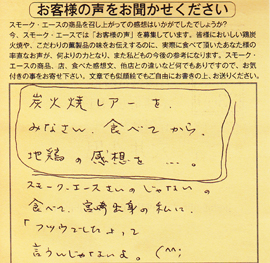 お客様の声をお聞かせください
スモーク・エースの商品を召し上がっての感想はいかがでしたでしょうか?
今、スモーク・エースでは「お客様の声」を募集しています。皆様においしい鶏炭
火焼や、こだわりの薫製品の味をお伝えするのに、実際に食べて頂いたあなた様の
率直なお声が、何よりの力となり、また私どもの今後の参考になります。スモーク・
エースの商品、店、食べた感想文、他店との違いなど何でもありですので、お気
付きの事をお寄せ下さい。文章でも似顔絵でもご自由にお書きの上、お送りください。
炭火焼レアーを、
みなさん、食べてから、
地鶏の感想を……。
スモークエースさんのじゃないの
食べて、宮崎出身の私に、
「フツウでしたよ」って
言うんじゃないよ。(^^;